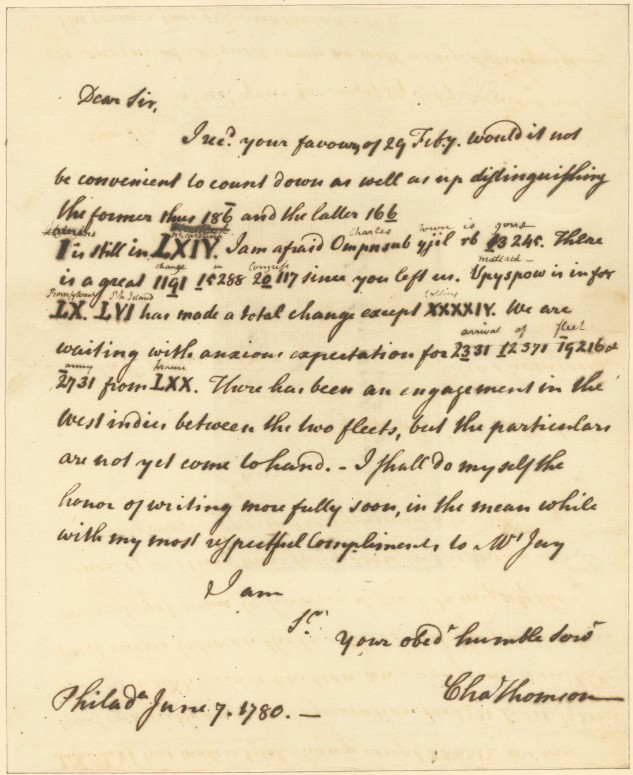 Dear Sir,
I recd. your favour of 29 Feby. would it not
be convenient to count down as well as up distinguishing
the former thus 186 and the latter 166
Charles town is gone
I is still in LXIV. I am afraid Ompnsub yjil rb 13 245. There
change in Congress matlred
is a great 1191 15 288 20 117 since you left us. Upyspow is in for
Pennsylvany Rh Island Collins
LX. LVI has made a total change except XXXXIV. We are
arrival of fleet
waiting with anxious expectation for 2331 12371 19216 &
army france
2731 from LXX. There has been an engagement in the
West indies between the two fleets, but the particulars
are not yet come to hand. – I shall do myself the
honor of writing more fully soon, in the mean while
with my most respectful Compliments to Mrs Jay
I am
Sr
Your obedt humble Servt
Chas Thomson
Philada June 7. 1780. –